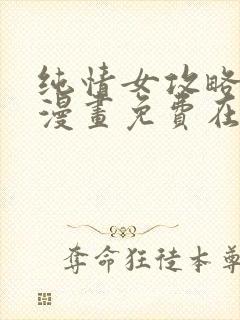 纯情女攻略
漫畫免費在
奪命狂徒本尊